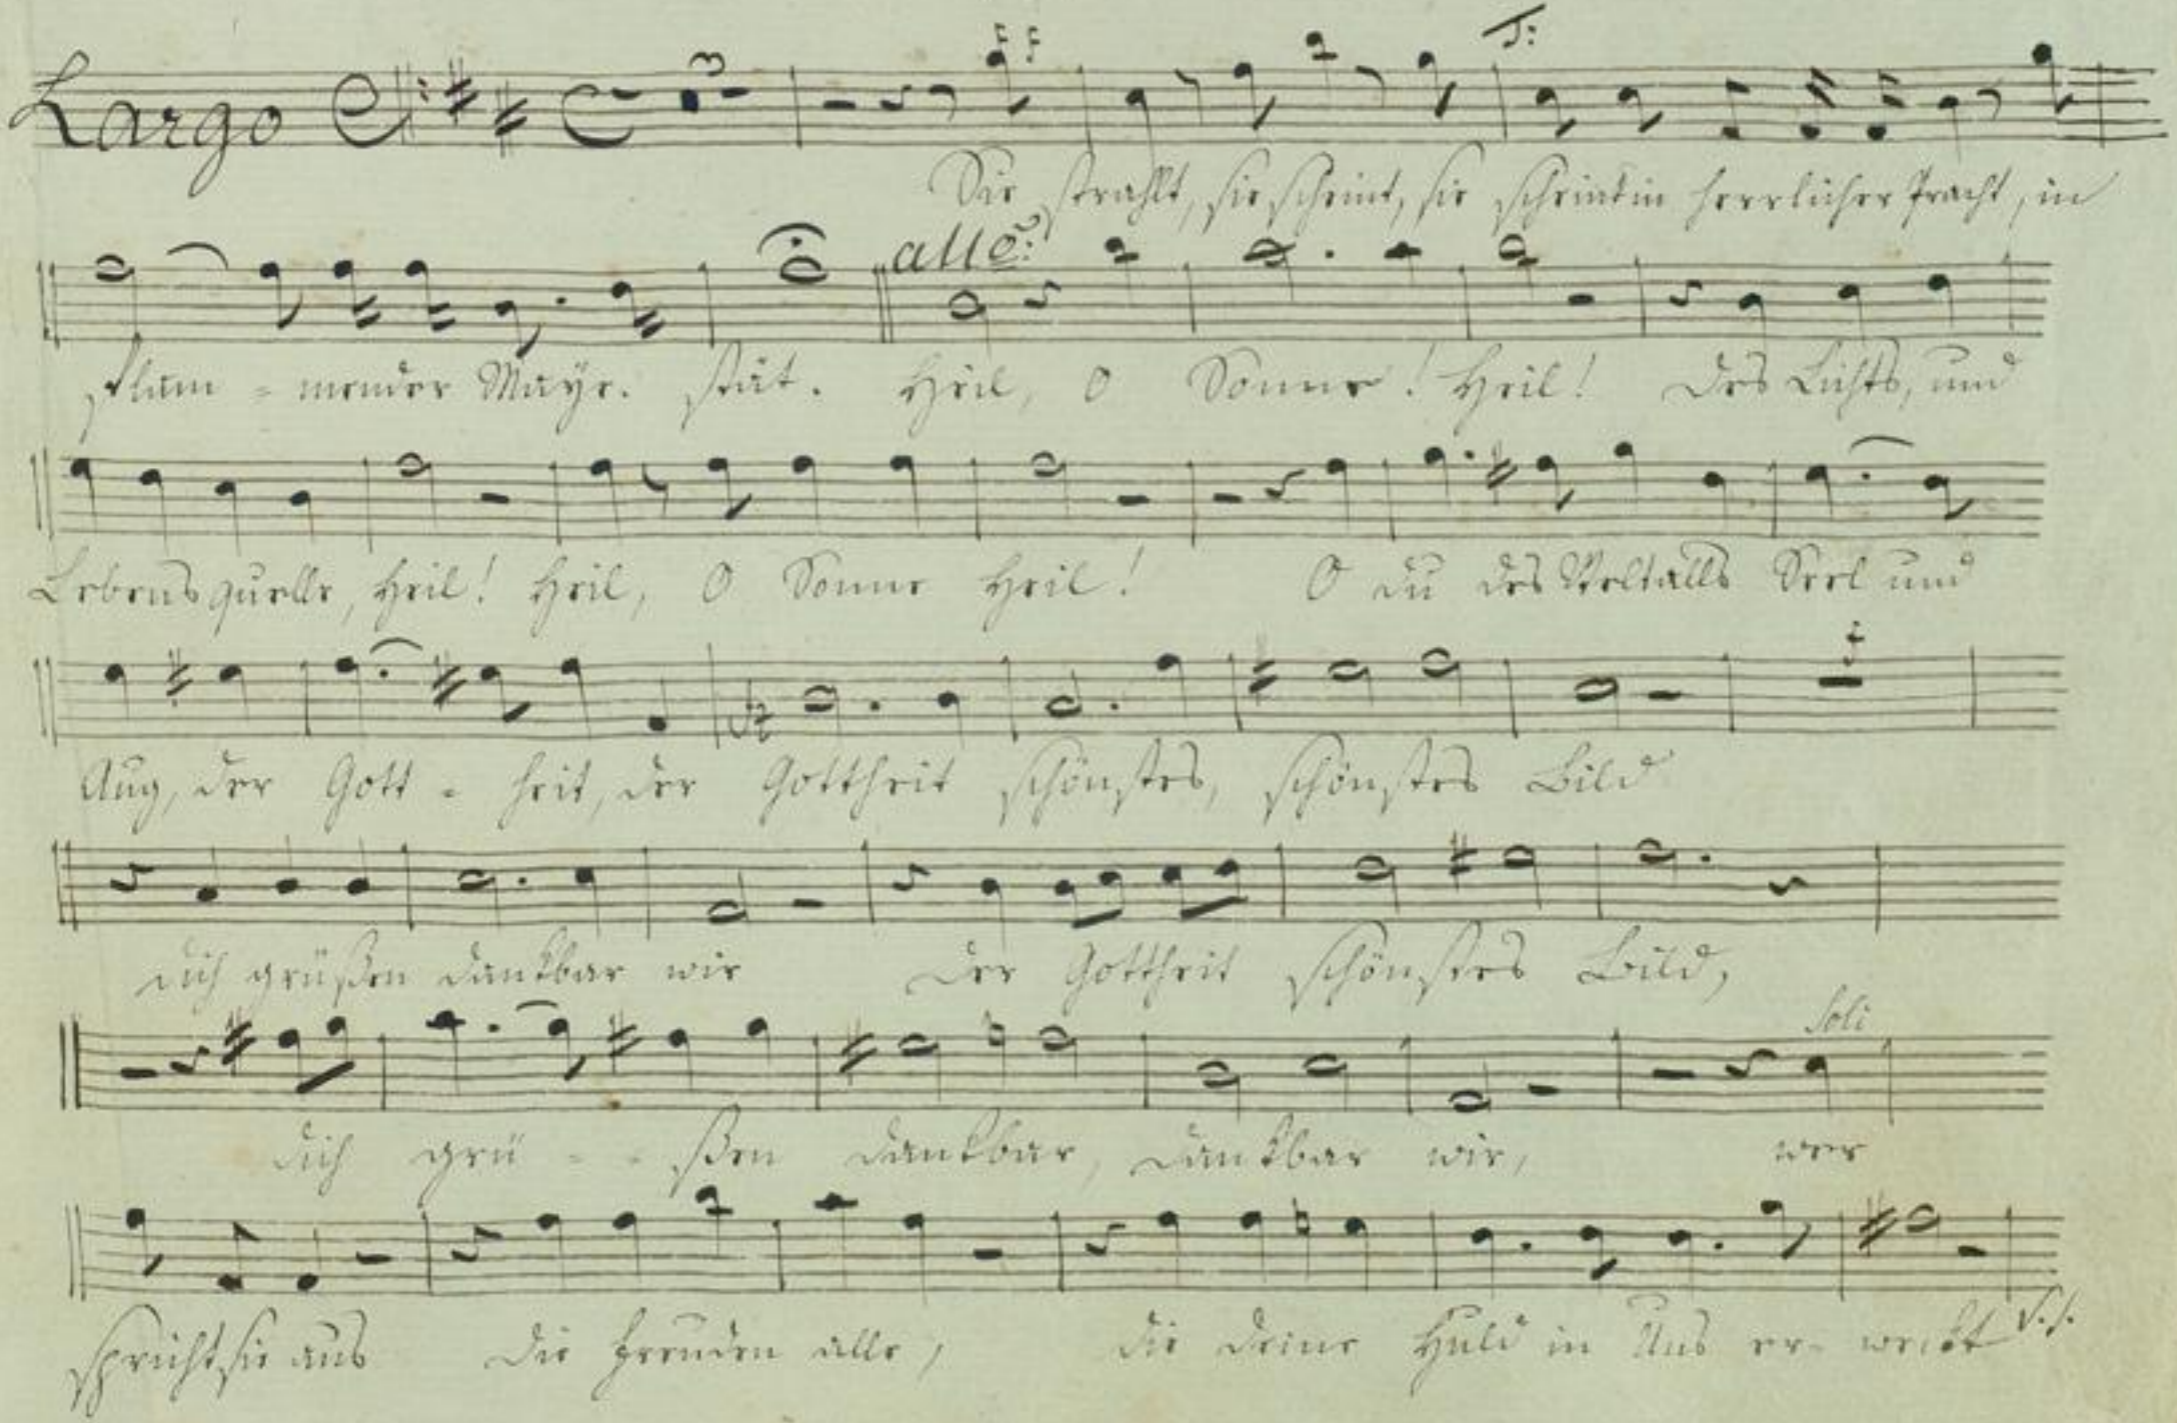 Largo 3 ff
Sie strahlt, sie scheint, sie scheint in herrlicher Pracht, in
allo:
flam = mender Maye. stät. Heil, O Sonne! Heil! des Lichts, und
Lebensquelle, Heil! Heil, O Sonne Heil! O du des Weltalls Seel und
Aug, der Gott - heit, der Gottheit schönstes, schönstes Bild
dich grüßen dankbar wir der Gottheit schönstes Bild,
Soli
dich grü - - ßen dankbar, dankbar wir, wer
spricht sie aus die Freuden alle, die deine Huld in Uns er- weckt V.S.